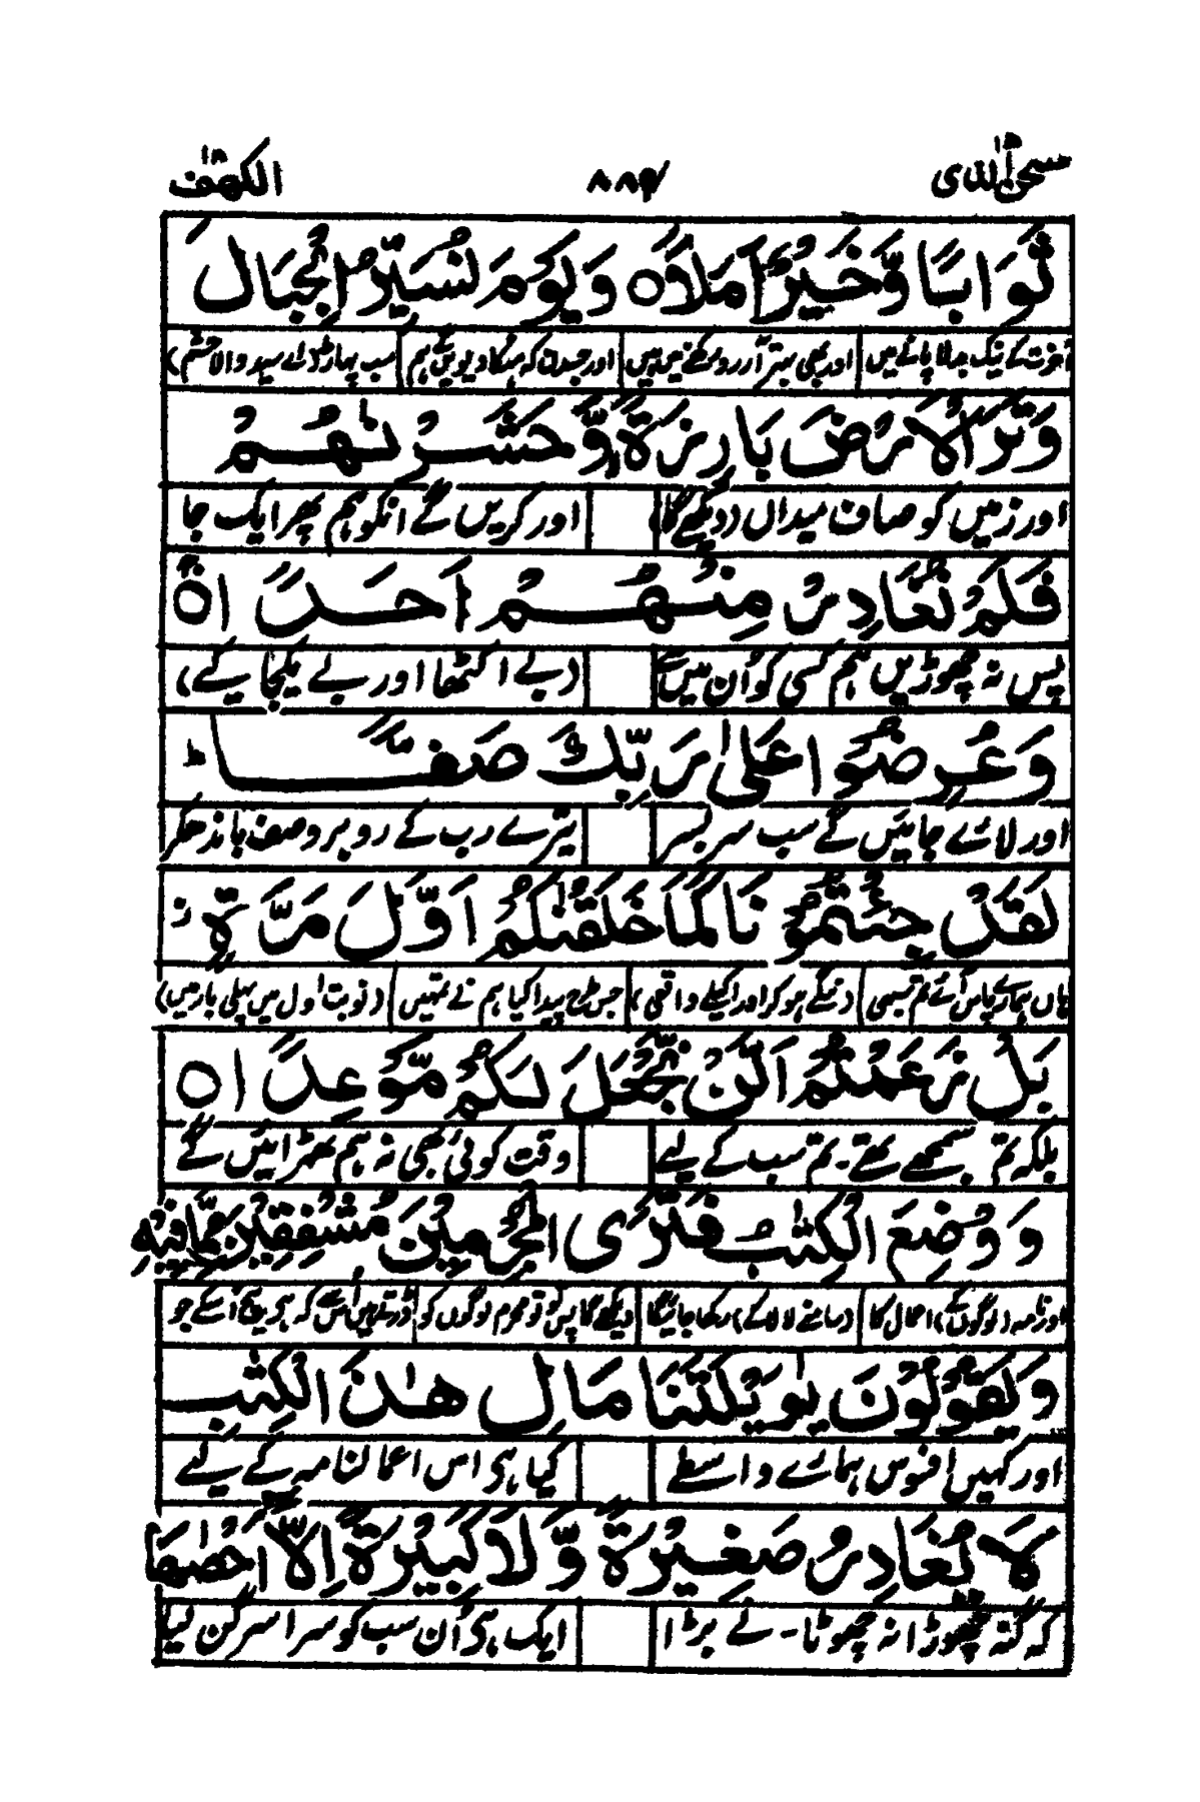 سبحٰن الذی ١٥ ٨٨٩ الکھف ١٨
ثَوَابًا وَّخَيْرٌ اَمَلًا ○ وَيَوْمَ نُسَيِّرُ الْجِبَالَ
آخرت کے نیک بدلا پانے میں اور بھی بہتر آرزو رکھنے میں ہیں اور جسدن کہ ہنکا دیویں گے ہم سب پہاڑ
وَتَرَى الْاَرْضَ بَارِزَةً وَّحَشَرْنٰهُمْ
اور زمیں کو صاف میدان (دیکھے گا) اور کریں گے انکو ہم پھر ایک جا
فَلَمْ نُغَادِرْ مِنْهُمْ اَحَدًا ○
پس نہ چھوڑیں ہم کسی کو اُن میں سے (بے اکٹھا اور بے یکجا کیے)
وَعُرِضُوْا عَلٰى رَبِّكَ صَفًّا ط
اور لائے جائیں گے سب سر بسر تیرے رب کے روبرو صف باندھکر
لَقَدْ جِئْتُمُوْنَا كَمَا خَلَقْنٰكُمْ اَوَّلَ مَرَّةٍ ز
ہاں ہمارے پاس آئے تم سبھی (ننگے ہو کر اور اکیلے واقعی) جس طرح پیدا کیا ہم نے تمہیں (نوبت اول میں پہلی بار میں)
بَلْ زَعَمْتُمْ اَلَّنْ نَّجْعَلَ لَكُمْ مَّوْعِدًا ○
بلکہ تم سمجھے تھے۔ تم سب کے لیے وقت کوئی بھی نہ ہم ٹھرائیں گے
وَوُضِعَ الْكِتٰبُ فَتَرَى الْمُجْرِمِيْنَ مُشْفِقِيْنَ مِمَّا فِيْهِ
اور نامہ (لوگوں کے) اعمال کا (سامنے لا لاکے) رکھا جائیگا دیکھے گا پس تو مجرم لوگوں کو ڈرتے ہیں اُس سے کہ ہی بیچ اُسکے جو
وَيَقُوْلُوْنَ يٰوَيْلَتَنَا مَالِ هٰذَا الْكِتٰبِ
اور کہیں افسوس ہمارے واسطے کیا ہی اس اعمالنامہ کے لیے
لَا يُغَادِرُ صَغِيْرَةً وَّلَا كَبِيْرَةً اِلَّآ اَحْصٰىهَا
کہ گنہ چھوڑا نہ چھوٹا۔ نے بڑا ایک ہی اُن سب کو سراسر گن لیا